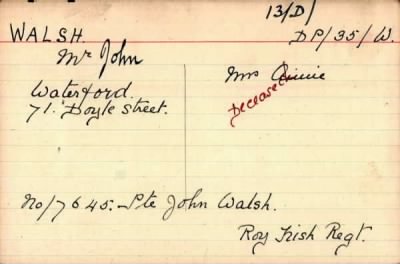 13/D/
WALSH. DP/35/W.
Mr John
Mrs
Deceased
Waterford.
71. Doyle Street.
No/7645. Pte John Walsh.
Roy Irish Regt.